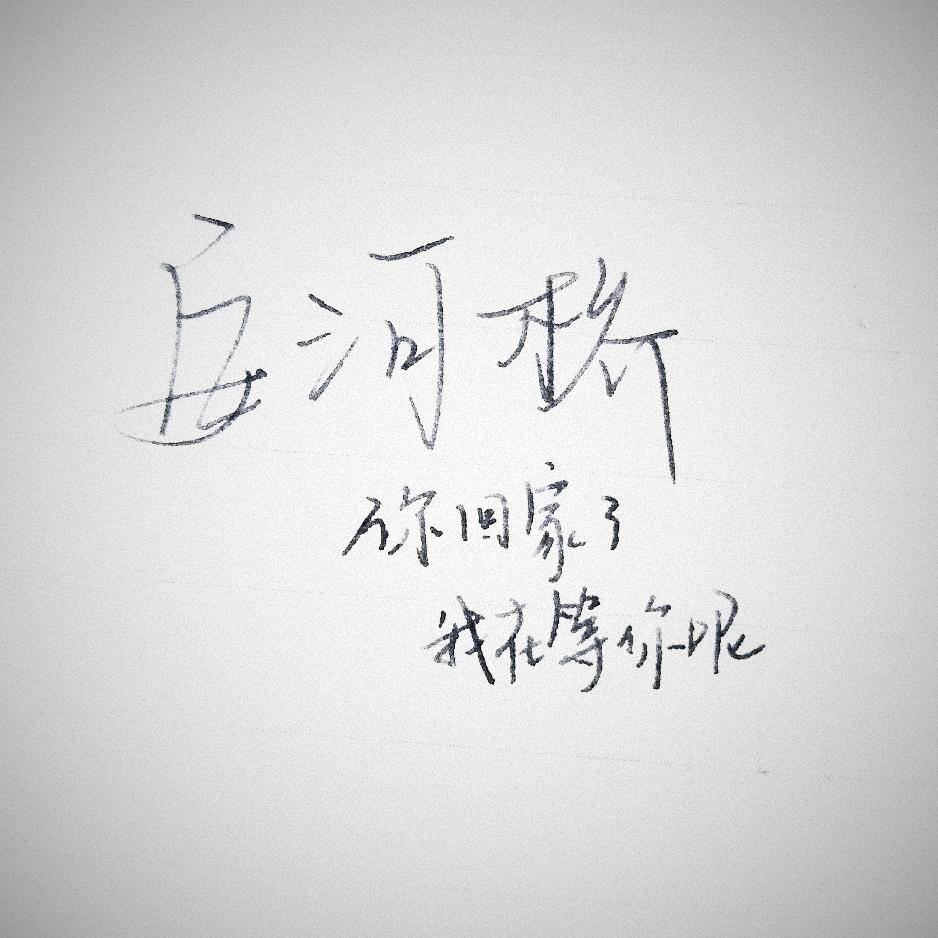 安河桥
你回家了
我在等你呢